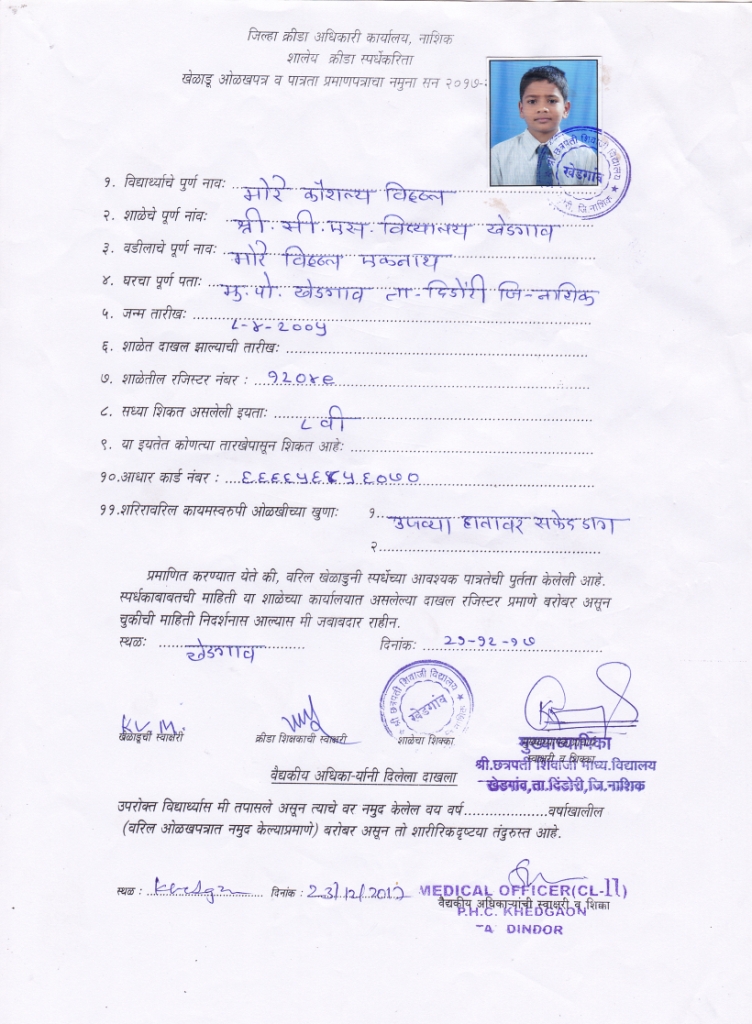 जिल्हा क्रीडा अधिकारी कार्यालय, नाशिक
शालेय क्रीडा स्पर्धेकरिता
खेळाडू ओळखपत्र व पात्रता प्रमाणपत्राचा नमुना सन २०१७-
श्री छत्रपती शिवाजी विद्यालय
खेडगांव
जि.नाशिक
१. विद्यार्थ्याचे पुर्ण नावः मोरे कौशल्य विठ्ठल
२. शाळेचे पूर्ण नांवः श्री. सी. एस. विद्यालय खेडगाव
३. वडीलाचे पूर्ण नावः मोरे विठ्ठल एकनाथ
४. घरचा पूर्ण पताः मु. पो. खेडगाव ता-दिंडोरी जि-नाशिक
५. जन्म तारीखः ८-४-२००५
६. शाळेत दाखल झाल्याची तारीखः
७. शाळेतील रजिस्टर नंबर : १२०४९
८. सध्या शिकत असलेली इयताः ८ वी
९. या इयतेत कोणत्या तारखेपासून शिकत आहेः
१०.आधार कार्ड नंबर :
११.शरिरावरिल कायमस्वरुपी ओळखीच्या खुणाः १ उजव्या हातावर सफेद डाग
२
प्रमाणित करण्यात येते की, वरिल खेळाडुनी स्पर्धेच्या आवश्यक पात्रतेची पुर्तता केलेली आहे.
स्पर्धकाबाबतची माहिती या शाळेच्या कार्यालयात असलेल्या दाखल रजिस्टर प्रमाणे बरोबर असून
चुकीची माहिती निदर्शनास आल्यास मी जवाबदार राहीन.
स्थळः खेडगाव दिनांकः २१-१२-१७
श्री छत्रपती शिवाजी विद्यालय
खेडगांव
नाशिक
K.V.M.
खेळाडूची स्वाक्षरी क्रीडा शिक्षकाची स्वाक्षरी शाळेचा शिक्का मुख्याध्यापिका
स्वाक्षरी व शिक्का
श्री.छत्रपती शिवाजी माध्य.विद्यालय
खेडगांव,ता.दिंडोरी,जि.नाशिक
वैद्यकीय अधिका-यांनी दिलेला दाखला
उपरोक्त विद्यार्थ्यास मी तपासले असून त्याचे वर नमुद केलेल वय वर्ष वर्षाखालील
(वरिल ओळखपत्रात नमुद केल्याप्रमाणे) बरोबर असून तो शारीरिकदृष्टया तंदुरुस्त आहे.
स्थळ : दिनांक : 23/12/2017 MEDICAL OFFICER(CL-II)
वैद्यकीय अधिकाऱ्यांची स्वाक्षरी व शिक्का
P.H.C. KHEDGAON
TA DINDOR